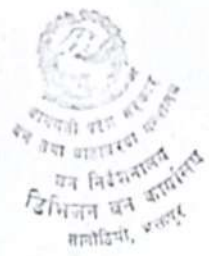 बागमती प्रदेश सरकार
वन तथा वातावरण मन्त्रालय
वन निर्देशनालय
डिभिजन वन कार्यालय
भक्तपुर